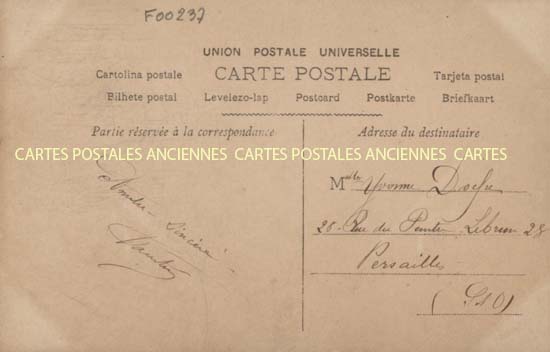 F00237
UNION POSTALE UNIVERSELLE
Cartolina postale CARTE POSTALE Tarjeta postal
Bilhete postal Levelezo-lap Postcard Postkarte Briefkaart
Partie réservée à la correspondance
Adresse du destinataire
CARTES POSTALES ANCIENNES CARTES POSTALES ANCIENNES CARTES
Sincère
Mlle Yvonne
28 - Rue du Peintre Lebrun 28
Versailles
(S&O)